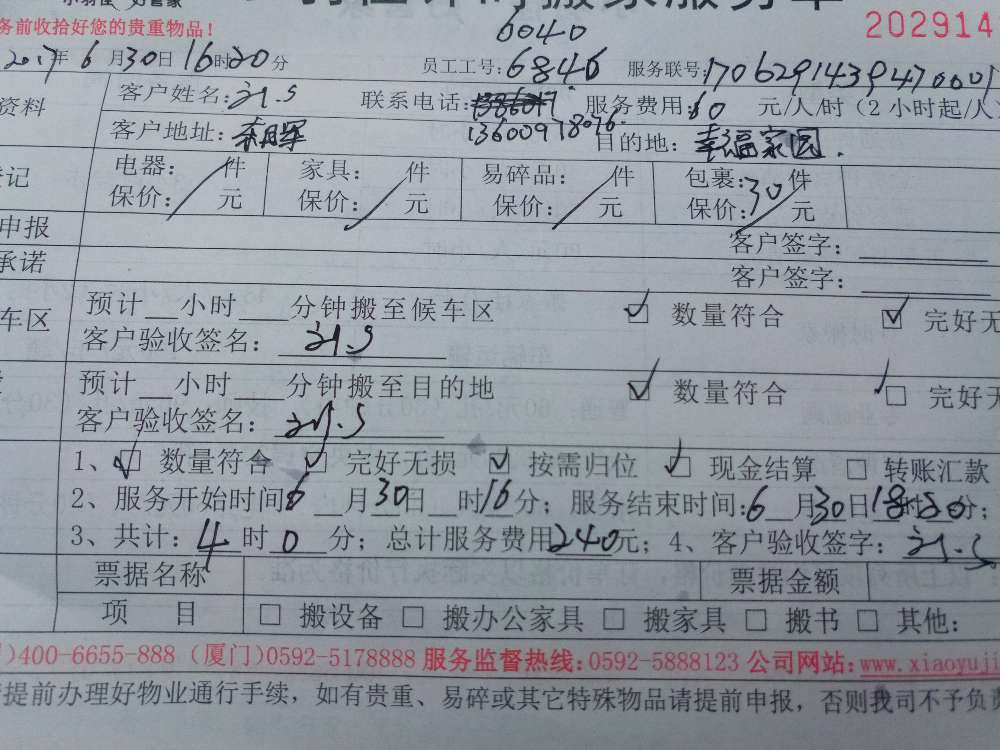 小羽佳 好管家 搬家服务单 202914
务前收拾好您的贵重物品!
6040
2017年6月30日16时20分 员工工号:6846 服务联号:1706291439470001
资料 客户姓名: 联系电话: 服务费用:60 元/人/时(2小时起/人
13600978076
客户地址: 目的地:幸福家园.
登记 电器: 件 家具: 件 易碎品: 件 包裹:30件
保价: 元 保价: 元 保价: 元 保价: 元
申报 客户签字:
承诺 客户签字:
车区 预计 小时 分钟搬至候车区 ☑ 数量符合 ☑ 完好无
客户验收签名:
预计 小时 分钟搬至目的地 ☑ 数量符合 ☑ 完好无
客户验收签名:
1、☑ 数量符合 ☑ 完好无损 ☑ 按需归位 ☑ 现金结算 □ 转账汇款
2、服务开始时间6月30日 时16分;服务结束时间:6月30日18时20分;
3、共计:4时0分;总计服务费用240元;4、客户验收签字:
票据名称 票据金额
项 目 □ 搬设备 □ 搬办公家具 □ 搬家具 □ 搬书 □ 其他:
)400-6655-888(厦门)0592-5178888 服务监督热线:0592-5888123 公司网站:www.xiaoyuji
提前办理好物业通行手续,如有贵重、易碎或其它特殊物品请提前申报,否则我司不予负责